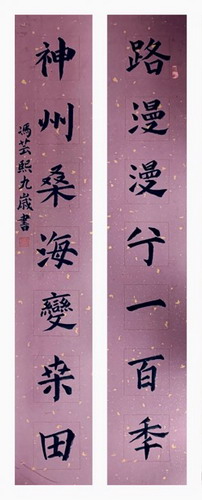 路漫漫兮一百秊
神州桑海變桒田
馮芸熙九歲書